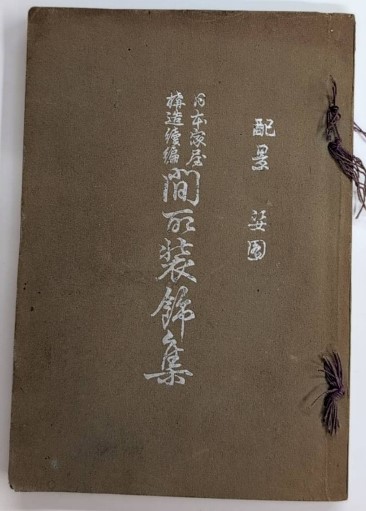 配景 姿図
日本家屋
構造續編
間取装飾集